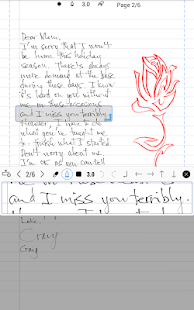 3.0 Page 2/6
Dear Mum,
I'm sorry that I won't
be home this holiday
season. There's always
more demand at the base
during these days. I know
it's hard on you without
me on these occasions
and I miss you terribly.
However, I have to do
what you've taught me
to - finish what I started.
Don't worry about me.
I'm ok as you can tell
2/6 3.0
and I miss you terribly.
Love,
Gary